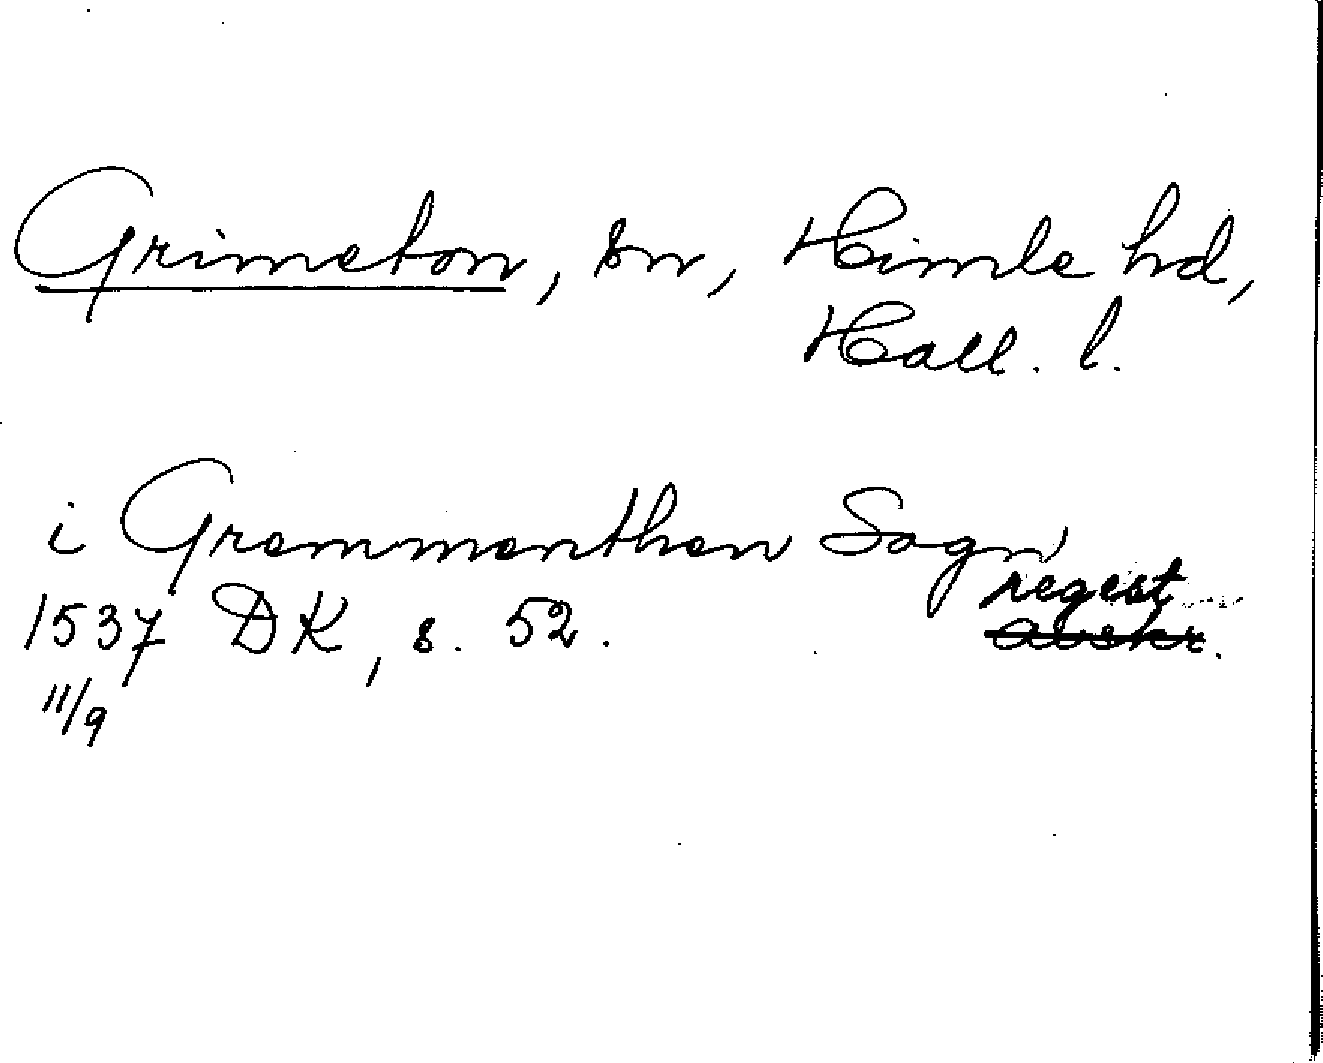 Grimeton, sn, Himle hd,
Hall. l.
i Grammanthan Sogn
regest
1537 DK, s. 52. avskr.
11/9